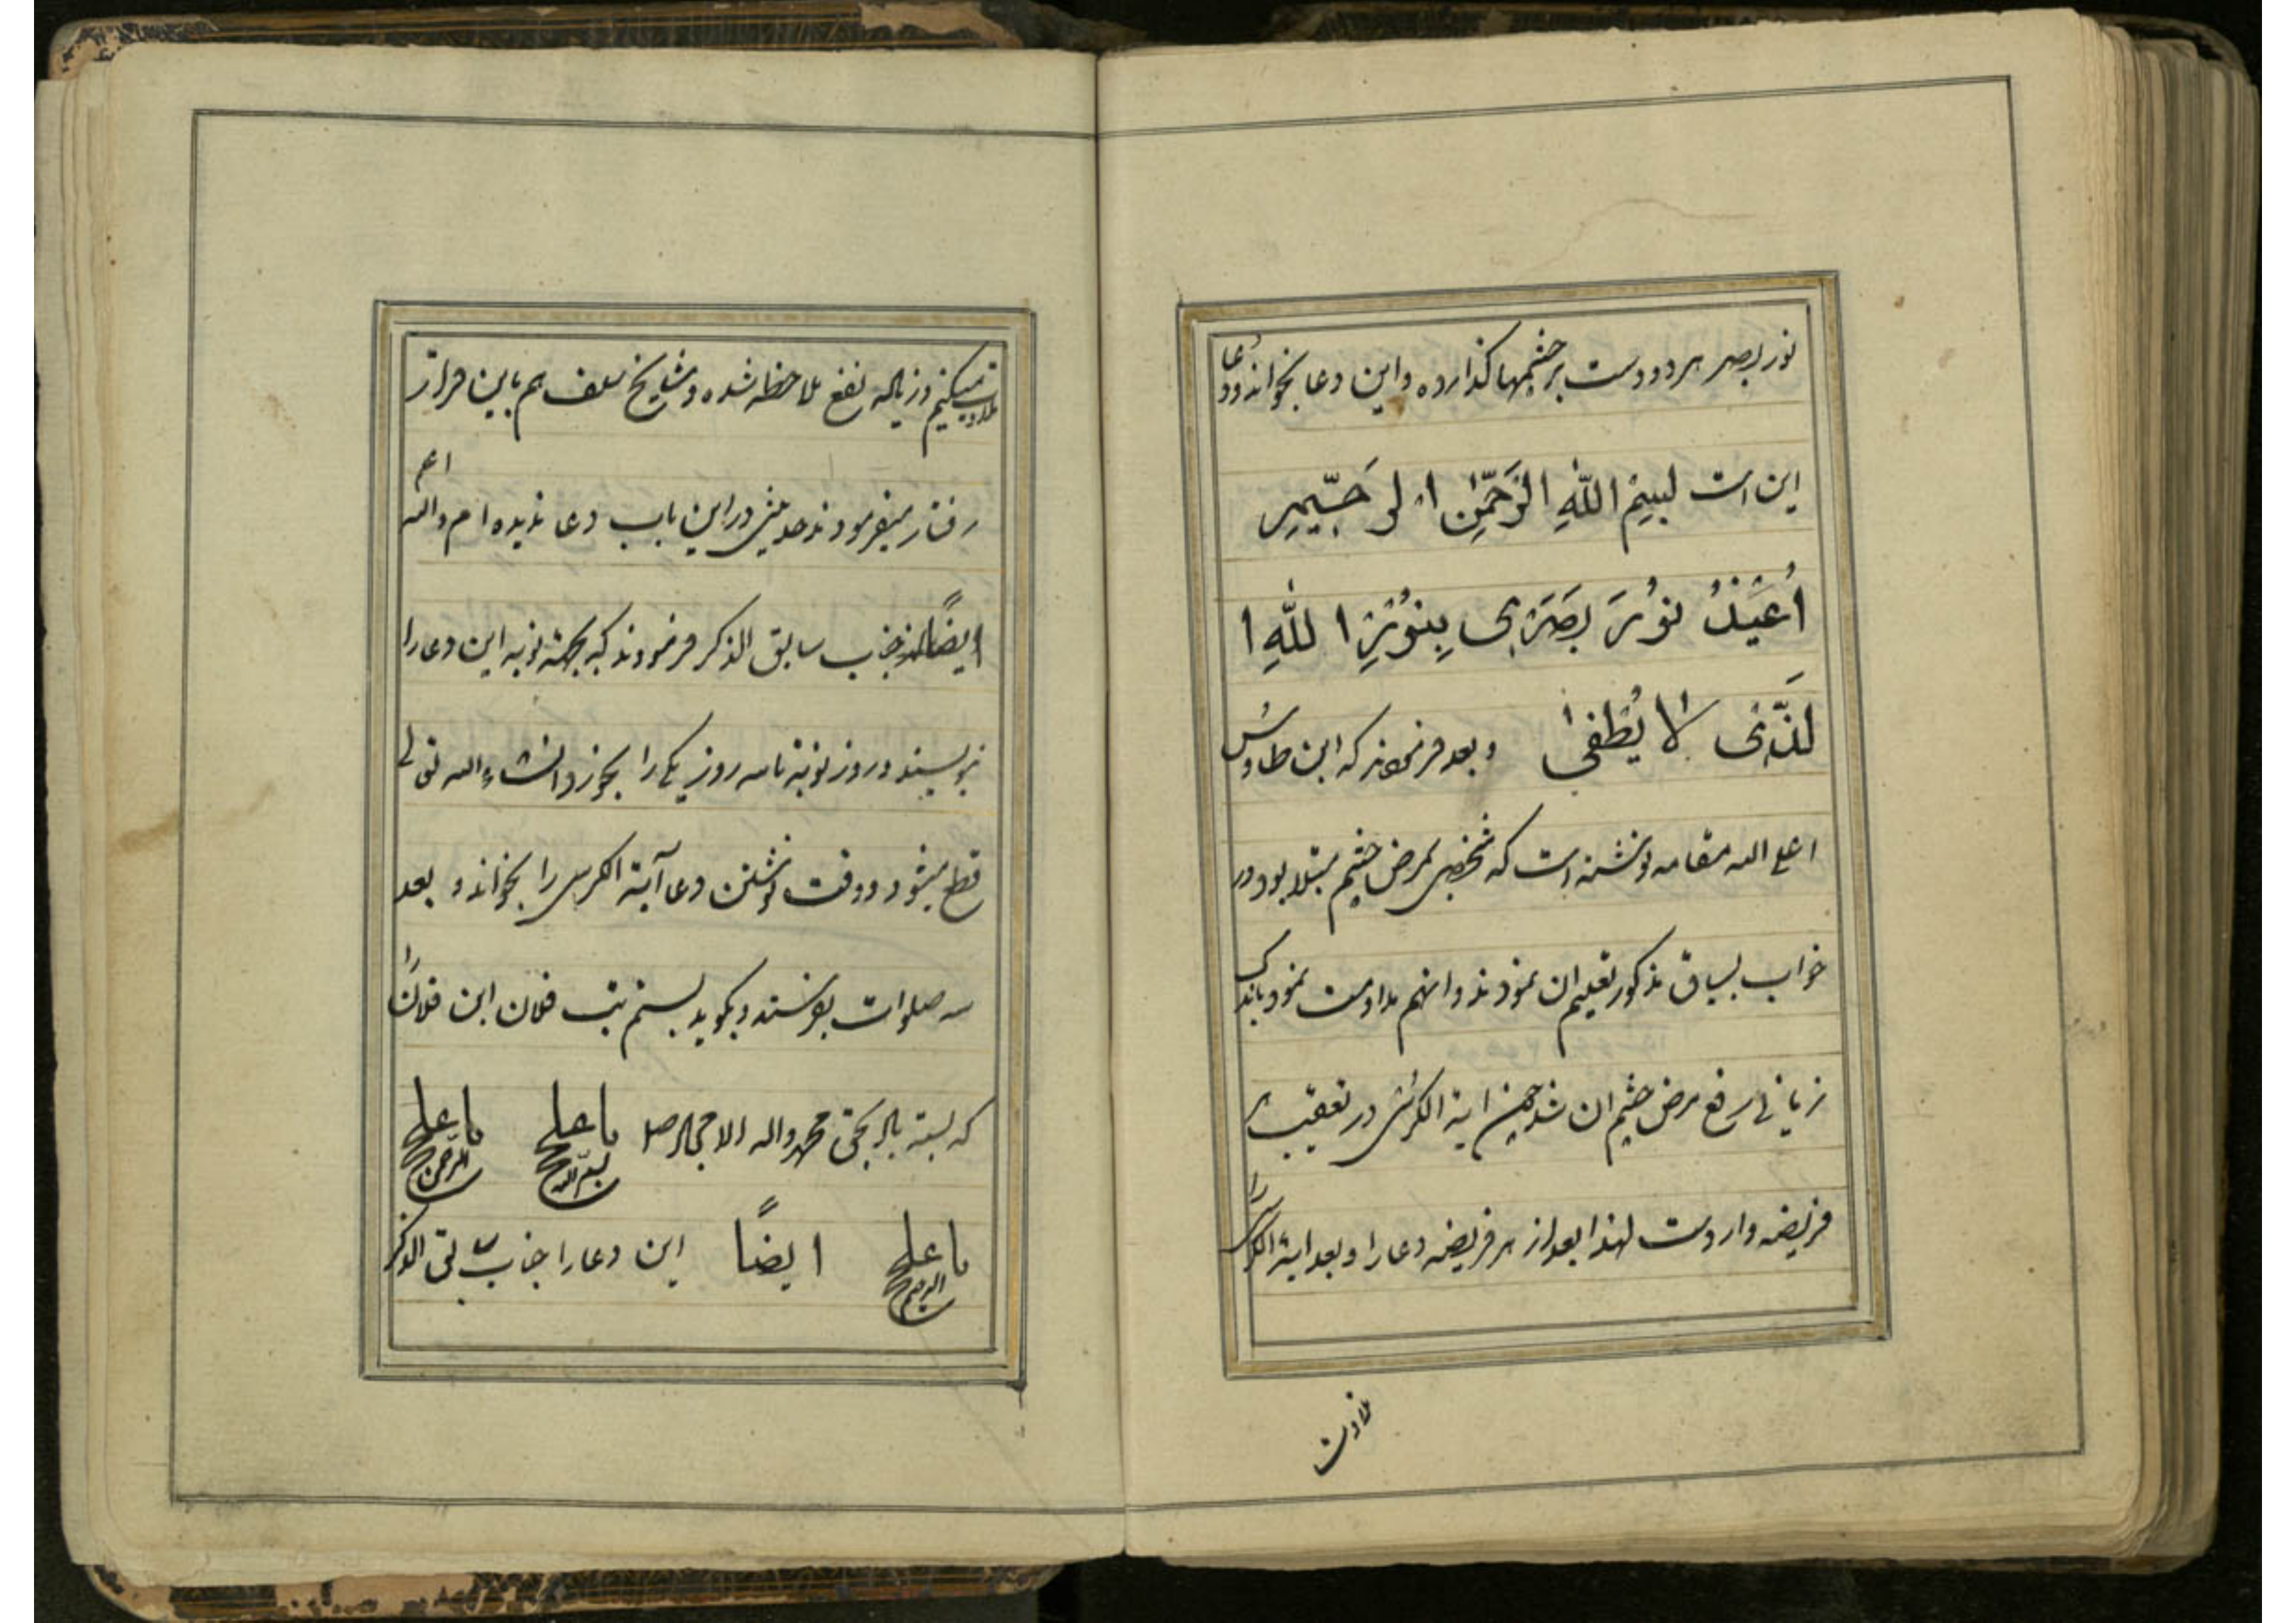 نور بصر هر دو دست بر چشمها گذارده و این دعا بخواند و دعا
این است بِسْمِ اللّٰهِ الرَّحْمٰنِ الرَّحِیمِ
اُعیذُ نوُرَ بَصَری بِنوُرِ اللّٰهِ ا
لَّذی لا یُطْفیٰ و بعد فرمودند که ابن طاوس
اعلی الله مقامه نوشته است که شخصی بمرض چشم مبتلا بود در
خواب بسیاق مذکور تعلیم ان نمودند و انهم مداومت نمود باندک
زمانی رفع مرض چشم ان شد چون ایة الکرسی در تعقیب هر
فریضه وارد است لهذا بعد از هر فریضه دعا را و بعد ایة الکرسی را
تلاوت
تلاوت میکنیم و زیاده نفع ملاحظه شده و مشایخ سلف هم باین قرار
رفتار میفرمودند حدیثی در این باب دعا ندیده ام و الله اعلم
ایضاً جناب سابق الذکر فرمودند که بجهة نوبه این دعا را
بنویسند و روز نوبة تا سه روز یکی را بخورد انشاء الله تعالی
قطع میشود و وقت نوشتن دعا آیة الکرسی را بخواند و بعد
سه صلوات بفرستد و بگوید بستم تب فلان ابن فلان را
که بسته باد بحق محمد و اله الامجاد صل یا علی بسم الله یا علی الرحمن
یا علی الرحیم ایضاً این دعا را جناب سابق الذکر